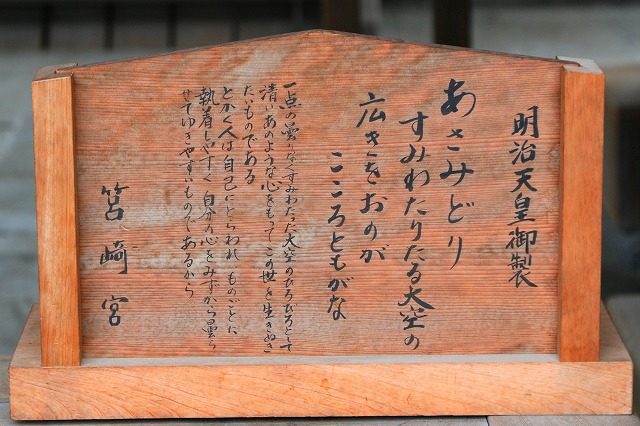 明治天皇御製
あさみどり
すみわたりたる大空の
広きをおのが
こころともがな
一点の曇りなくすみわたった大空のひろびろとして
清いあのような心をもってこの世を生きぬき
たいものである
とかく人は自己にとらわれ ものごとに
執着しやすく 自分の心をみずから曇ら
せてゆきやすいものであるから
筥崎宮